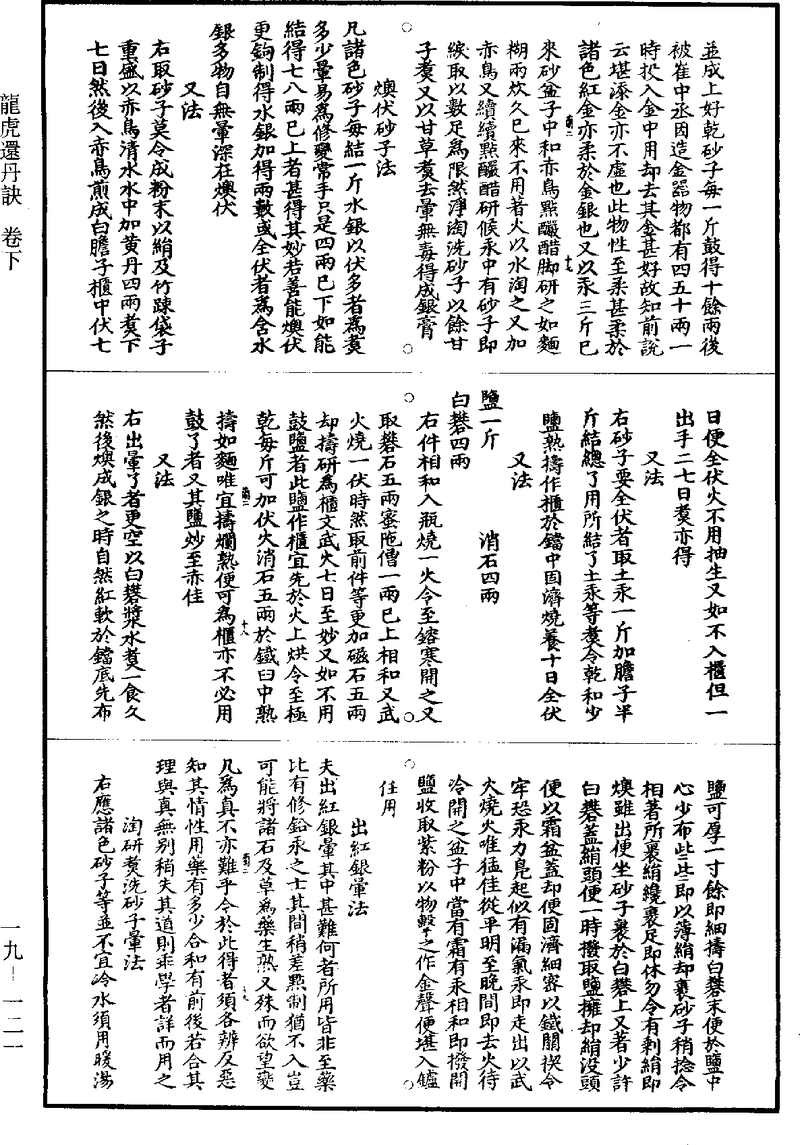 並成上好乾砂子每一斤鼓得十餘兩後
被崔中丞因造金器物都有四五十兩一
時投入金中用却去其金甚好故知前說
云堪添金亦不虛也此物性至柔甚柔於
諸色紅金亦柔於金銀也又以汞三斤已
來砂盆子中和赤鳥點釅醋脚研之如麵
糊兩炊久已來不用著火以水淘之又加
赤鳥又續續點釅醋研候汞中有砂子即
綟取以數足為限然淨淘洗砂子以餘甘
子煑又以甘草煑去暈無毒得成銀膏
燠伏砂子法
凡諸色砂子每結一斤水銀以伏多者為煑
多少暈易為修變常手只是四兩已下如能
結得七八兩已上者甚得其妙若善能燠伏
更鉤制得水銀加得兩數或全伏者為含水
銀多物自無暈深在燠伏
又法
右取砂子莫令成粉末以絹及竹踈袋子
重盛以赤鳥清水水中加黃丹四兩煑下
七日然後入赤鳥煎成白膽子櫃中伏七
日便全伏火不用抽生又如不入櫃但一
出手二七日煑亦得
又法
右砂子要全伏者取土汞一斤加膽子半
斤結總了用所結了土汞等煑令乾和少
鹽熟擣作櫃於鐺中固濟燒養十日全伏
又法
鹽一斤　消石四兩
白礬四兩
右件相和入瓶燒一火令至鎔寒開之又
取礬石五兩蜜陁僧一兩已上相和又武
火燒一伏時然取前件等更加磁石五兩
却擣研為櫃文武火七日至妙又如不用
鼓鹽者此鹽作櫃宜先於火上烘令至極
乾每斤可加伏火消石五兩於鐵臼中熟
擣如麵唯宜擣爛熟便可為櫃亦不必用
鼓了者又其鹽炒至赤佳
又法
右出暈了者更空以白礬漿水煑一食久
然後燠成銀之時自然紅軟於鐺底先布
鹽可厚一寸餘即細擣白礬末便於鹽中
心少布些些即以薄絹却裹砂子稍捻令
相著所裹絹纔裹足即休勿令有剩絹即
燠雖出便坐砂子裹於白礬上又著少許
白礬蓋絹頭便一時撥取鹽擁却絹没頭
便以霜盆蓋却便固濟細密以鐵關揳令
牢恐汞力㲹起似有漏氣汞即走出以武
火燒火唯猛佳從平明至晚間即去火待
冷開之盆子中當有霜有汞相和即撥開
鹽收取紫粉以物擊之作金聲便堪入鑪
任用
出紅銀暈法
夫出紅銀暈其中甚難何者所用皆非至藥
比有修鉛汞之士其間稍差點制猶不入豈
可能將諸石及草為藥生熟又殊而欲望變
凡為真不亦難乎今於此得者須各辨反惡
知其情性用藥有多少合和有前後若合其
理與真無别稍失其道則乖學者詳而用之
淘研煑洗砂子暈法
右應諸色砂子等並不宜冷水須用暖湯
龍虎還丹訣　卷下
一九—一二一